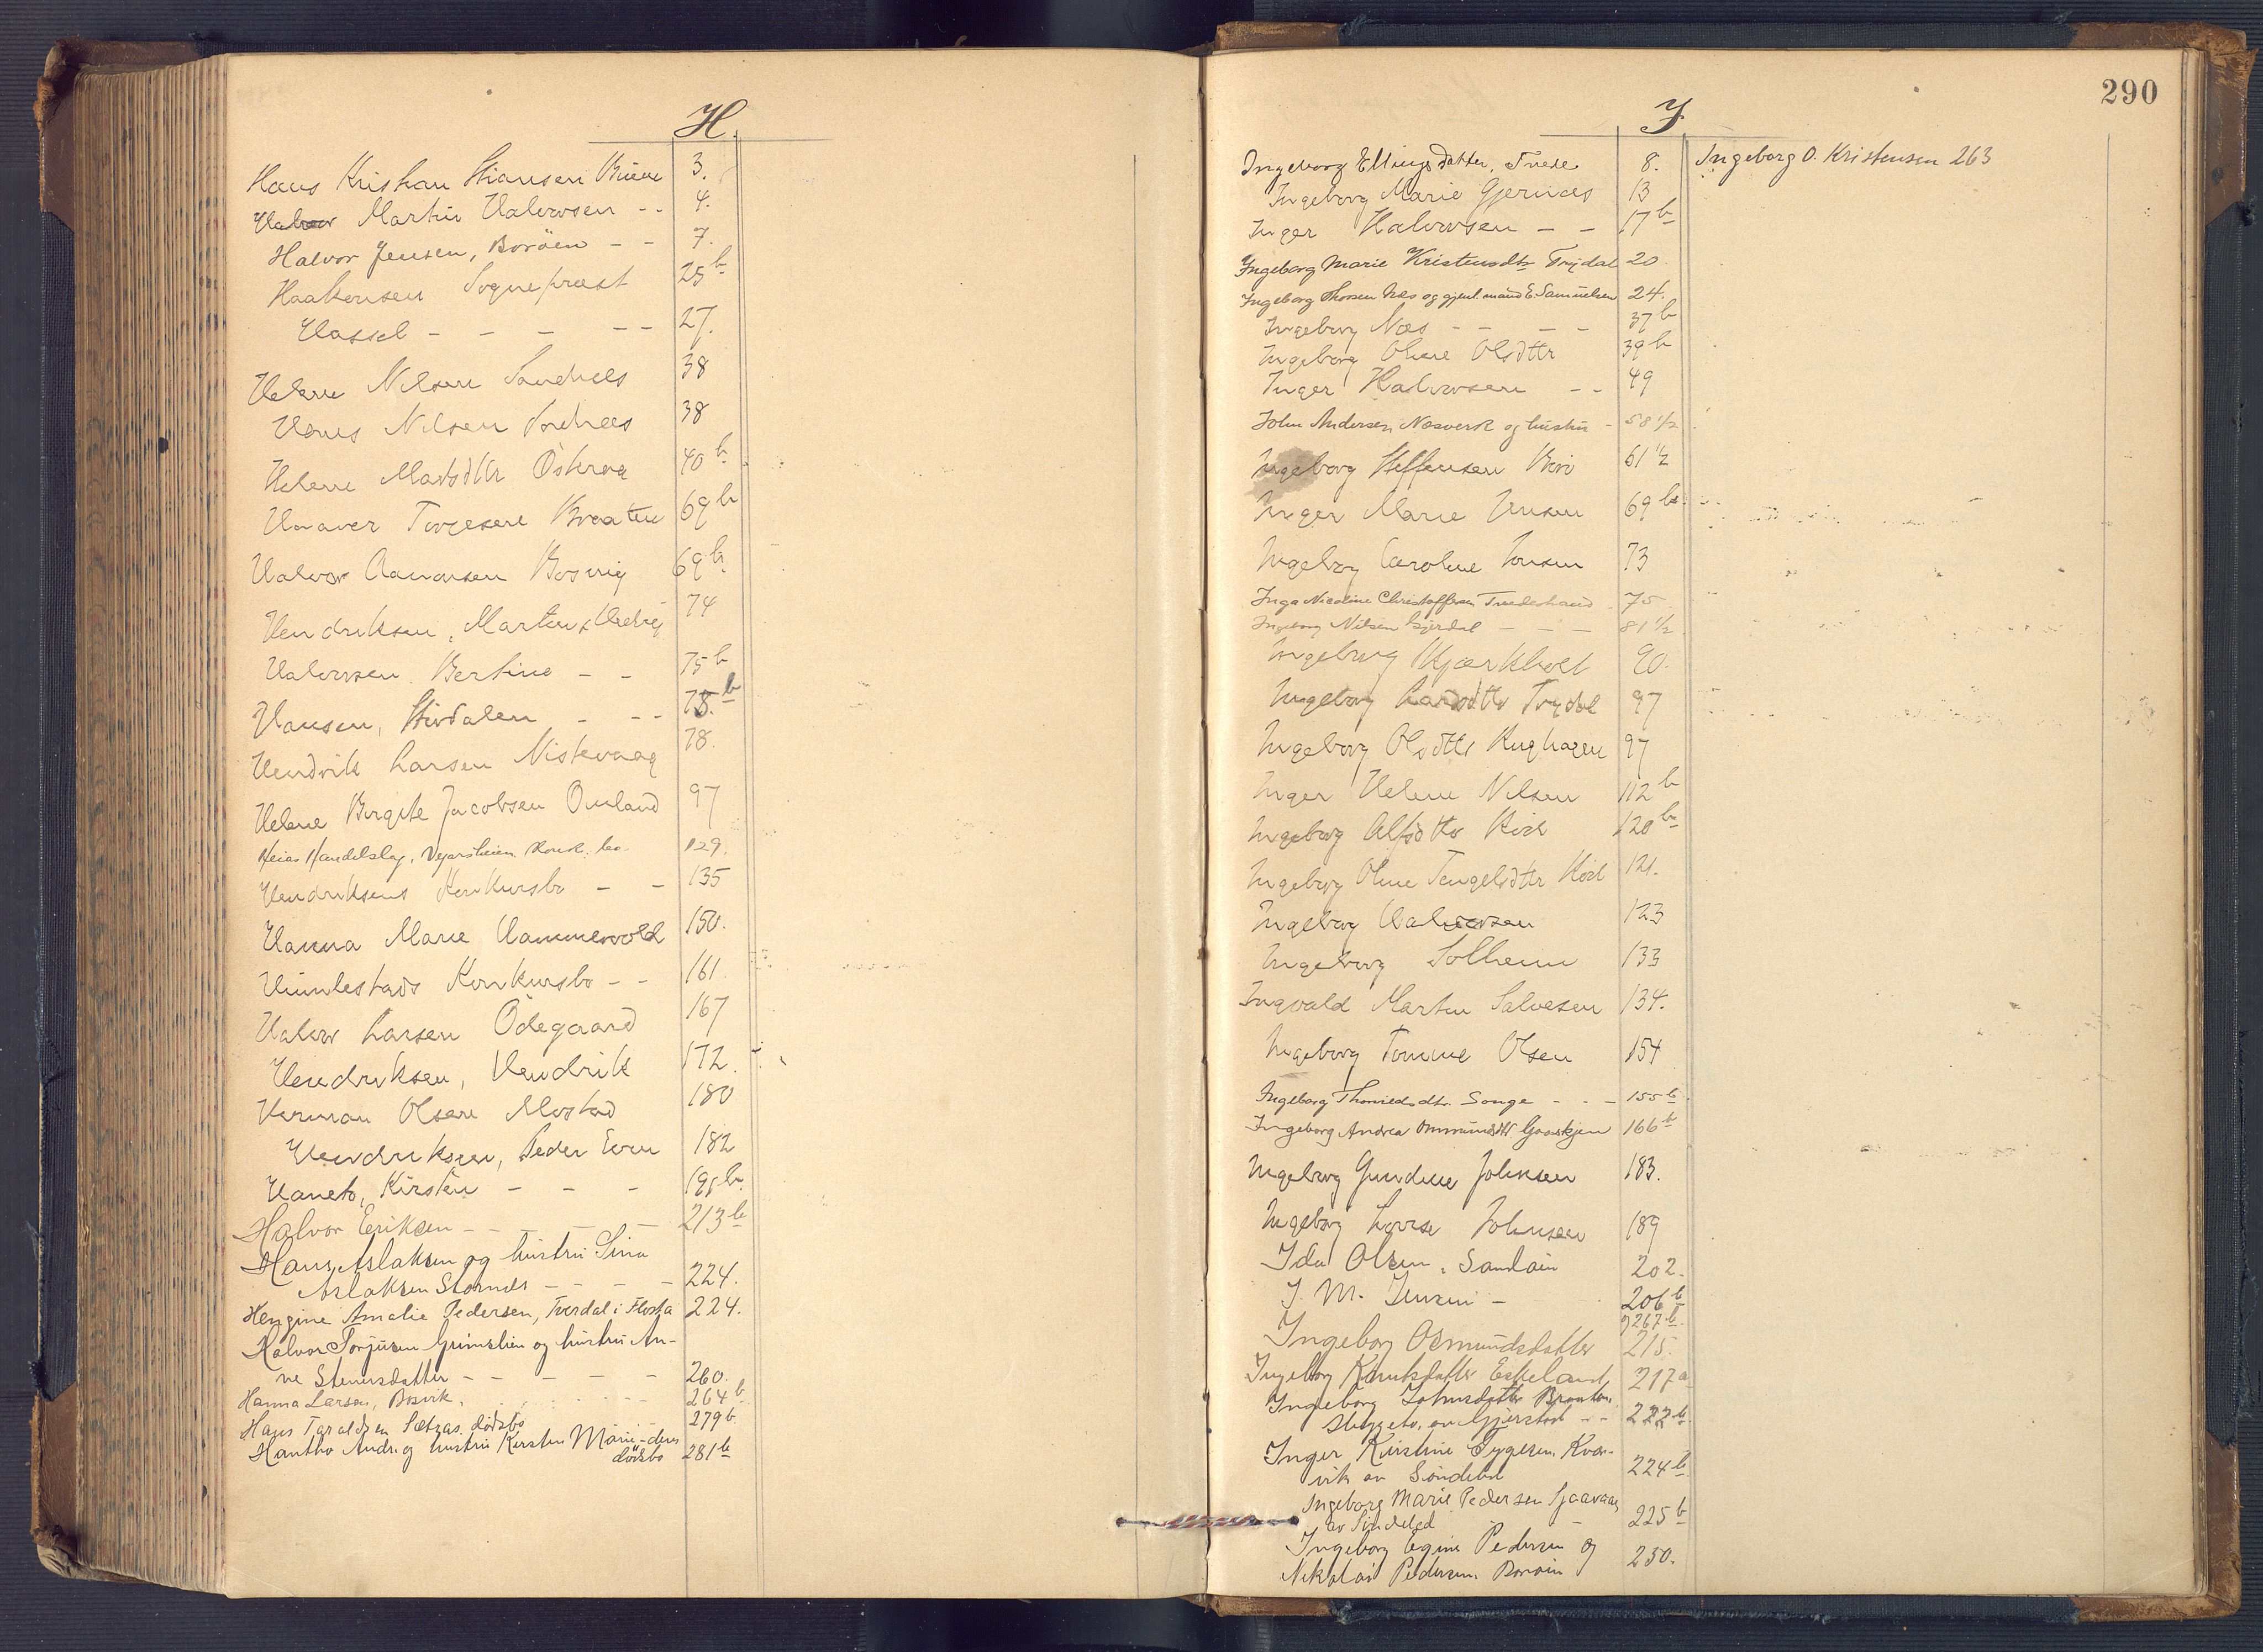 H.
Hans Kristian Stiansen 3.
Halvor Martin Halvorsen - - 4.
Halvor Jensen, Borøen - - 7.
Haakonsen Sogneprest 25 b
Hassel - - - - - 27.
Helene Nilsen Sandnes 38
Hans Nilsen Sandnes 38
Helene Madsdtr 40 b
Torgesen Braaten 69 b
Halvor Aanonsen Bosvig 69 b
Hendriksen, Martin 74
Halvorsen Bertine - - 75 b
Hansen, - - - b
Hendrik Larsen Niskevaag 78.
Helene Birgite Jacobsen Omland 97
Heias Handelslag, Vegarsheien. Konk. bo. 129.
Hendriksens Konkursbo - - 135
Hanna Marie Hammervold 150.
Konkursbo - - 161.
Halvor Larsen Ødegaard 167
Hendriksen, Hendrik 172.
Herman Olsen Mostad 180
Hendriksen, Peder Even 182
Haneto, Kirsten - - - 195 b.
Halvor Eriksen - - - - 213 b
Hans Aslaksen og hustru Sina
Aslaksen Stornes - - - - 224.
Hengine Amalie Pedersen, Tverdal i Flosta 224.
Halvor Torjusen Grimslien og hustru An-
ne Steensdatter - - - - - 260.
Hanna Larsen, Bosvik. 264 b
Hans Taraldsen Sætras dødsbo 279 b.
Hantho Andr. og hustru Kirsten Marie - deres
dødsbo 281 b
290
I
Ingeborg Ellingsdatter, 8.
Ingeborg Marie Gjernæs 13
Inger Halvorsen - - 17 b
Ingeborg Marie Kristensdtr Trydal 20
Ingeborg Thorsen Næs og gjenl. mand E. Samuelsen 24.
Ingeborg Næs - - - - 37 b
Ingeborg Oline Olsdttr 39 b
Inger Halvorsen - - 49
John Andersen Næsverk og hustru - 58 1/2
Ingeborg Steffensen 61 1/2
Inger Marie Jensen 69 b.
Ingeborg Caroline Jonsen 73
Inga Nicoline Christoffersen Tvedestrand 75
Ingeborg Nilsen Gjerdal - - - 81 1/2
Ingeborg 90.
Ingeborg Larsdttr Trydal 97
Ingeborg Olsdttr 97
Inger Helene Nilsen 112 b
Ingeborg Alfsdttr 120 b
Ingeborg Oline 121.
Ingeborg Halvorsen 123
Ingeborg Solheim 133
Ingvald Martin Salvesen 134.
Ingeborg Tomine Olsen 154
Ingeborg Thorvaldsdtr. Songe - - - 155 b
Ingeborg Andrea Ommundsdtr Gaaskjen 166 b
Ingeborg Gundine Johnsen 183.
Ingeborg Lovise Johnsen 189
Ida Olsen, Sandøien 202.
J. M. Jensen - 206 b
g 267 b.
Ingeborg Osmundsdatter 215.
Ingeborg Knutsdatter Eskeland 217 a
Ingeborg Johnsdatter Braaten
av Gjerstad - - 222 b.
Inger Kirstine Tygesen. Kvar-
vik av Søndeled 224 b.
Ingeborg Marie Pedersen Sjaavaag
av Søndeled - 225 b
Ingeborg Pedersen og
Nikolai Pedersen. Borøen 230.
Ingeborg O. Kristensen 263